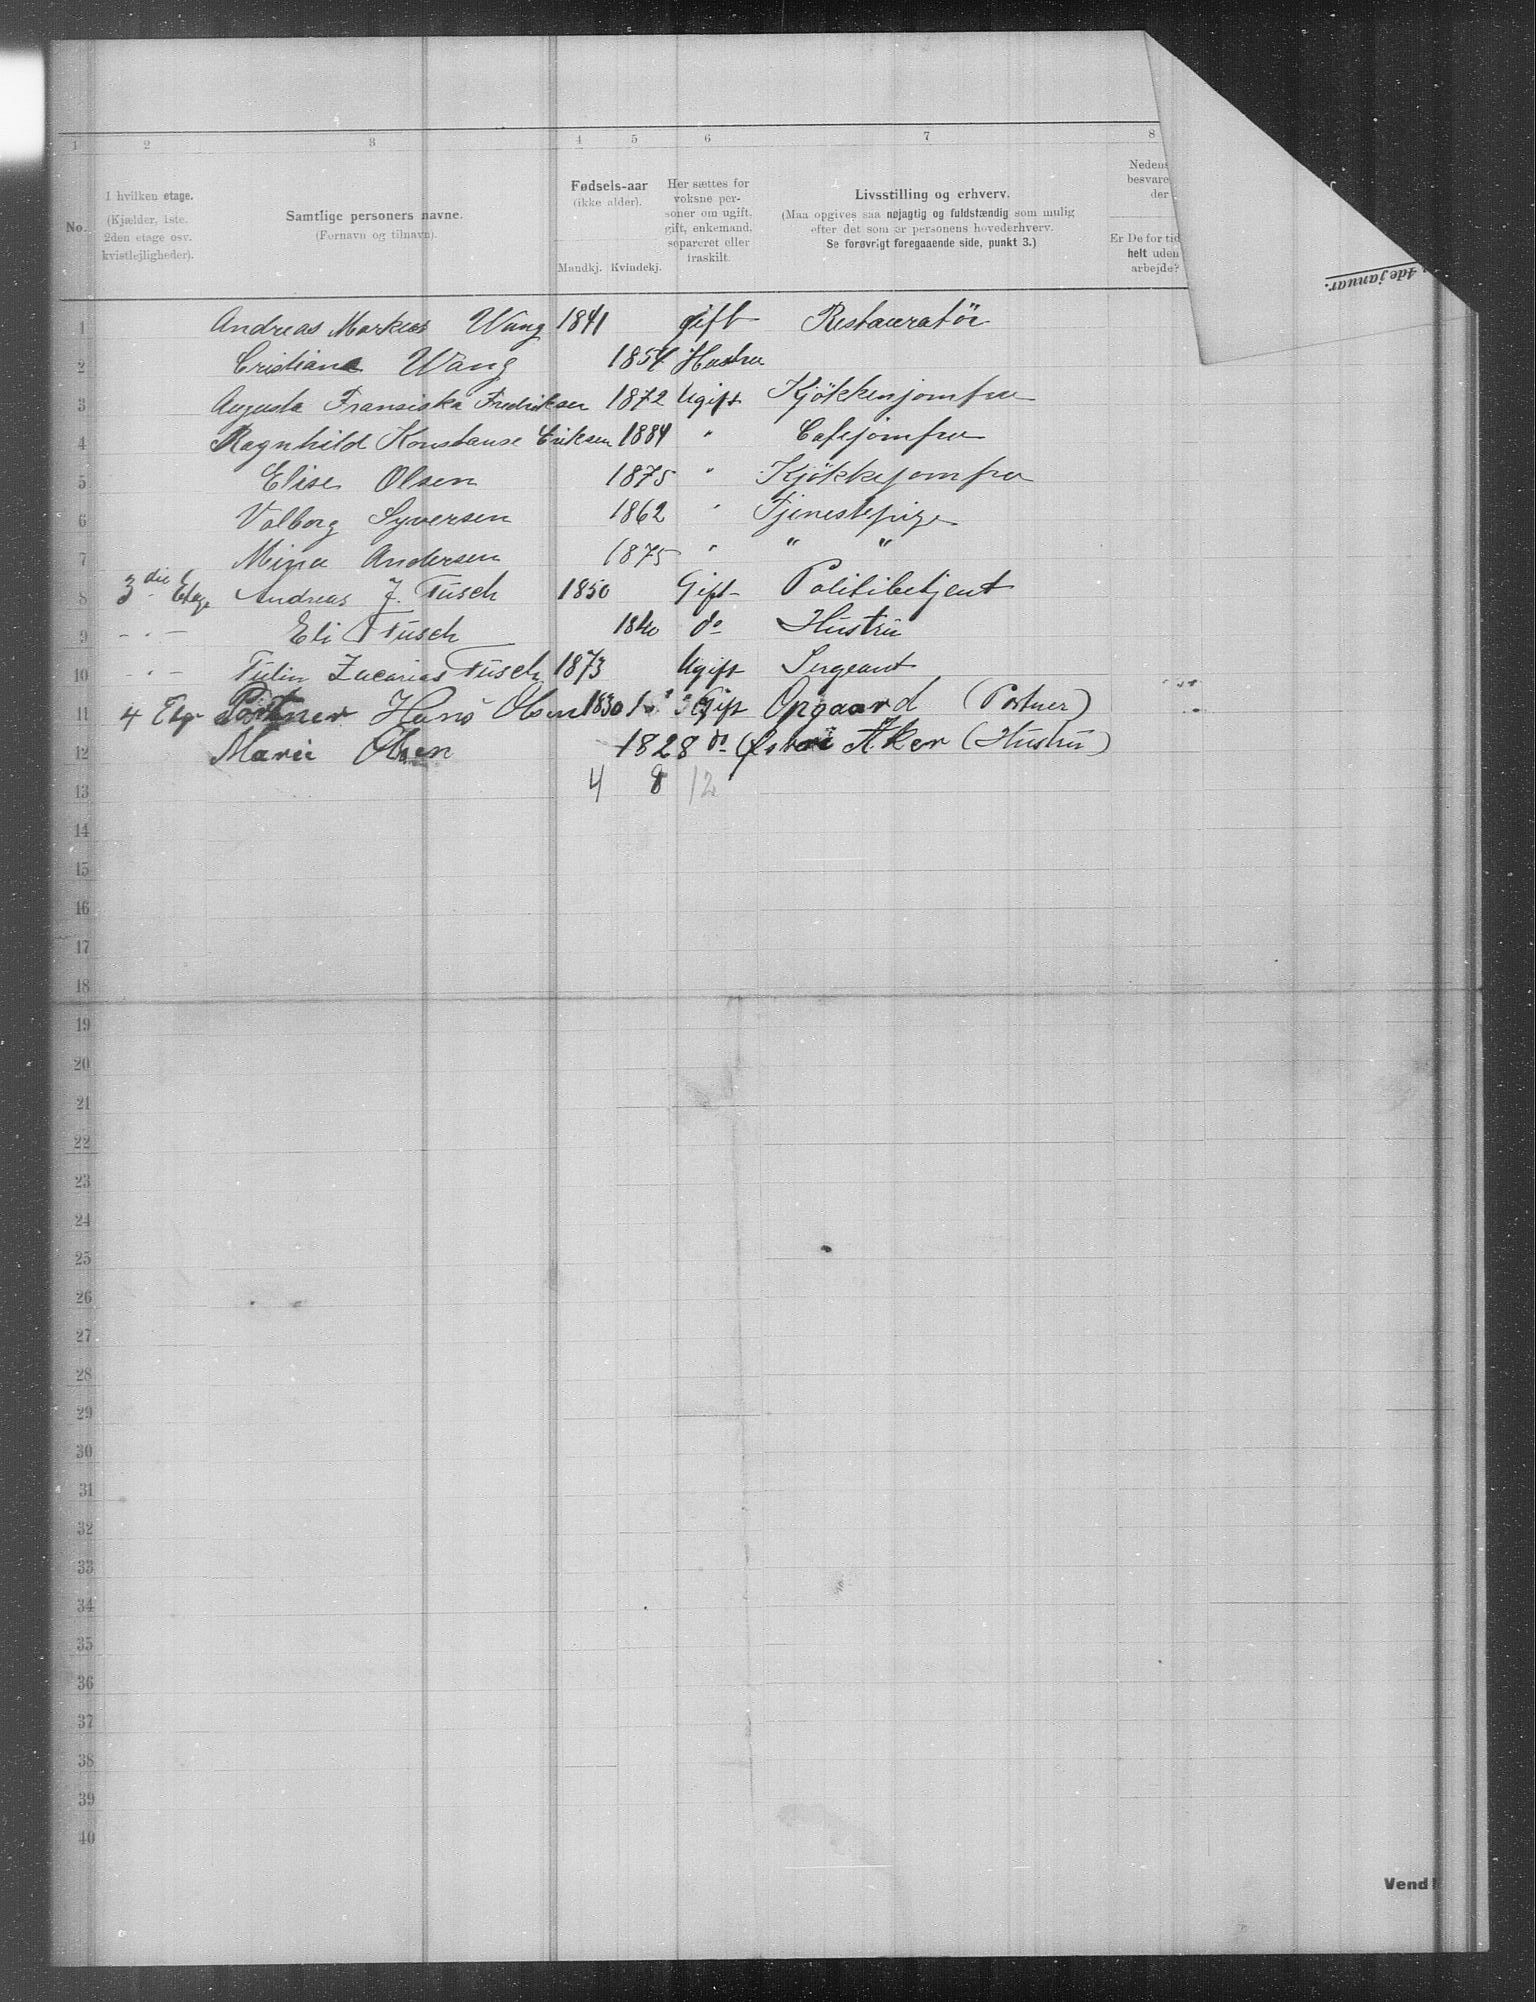 1 2 3 4 5 6 7 8
No. I hvilken etage. (Kjælder, 1ste. 2den etage osv. kvistlejligheder). Samtlige personers navne. (Fornavn og tilnavn). Fødsels-aar (ikke alder). Mandkj. Kvindekj. Her sættes for voksne per- soner om ugift, gift, enkemand, separeret eller fraskilt. Livsstilling og erhverv. (Maa opgives saa nøjagtig og fuldstændig som mulig efter det som er personens hovederhverv. Se forøvrigt foregaaende side, punkt 3.) Nedens besvare der Er De for tid helt uden arbejde?
4de januar.
1 Andreas Markus Wang 1841 gift Restauratør
2 Cristiana Wang 1854 Hustru
3 Augusta Fransiska Fredriksen 1872 Ugift Kjøkkenjomfru
4 Ragnhild Konstanse Eriksen 1884 " Cafejomfru
5 Elise Olsen 1875 " Kjøkkejomfru
6 Valborg Syversen 1862 " Tjenestepige
7 Mina Andersen 1875 " " "
8 3die Etage Andreas J. Tusch 1850 Gift Politibetjent
9 - " - Eli Tusch 1840 do Hustru
10 - " - Tulin Zacarias Tusch 1873 Ugift Sergeant
11 4 Etge Portner Hans Olsen 1830 Gift Opgaard (Portner)
12 Marie Olsen 1828 do Østre Aker (Hustru)
13 4 8 12
14
15
16
17
18
19
20
21
22
23
24
25
26
27
28
29
30
31
32
33
34
35
36
37
38
39
40
Vend!